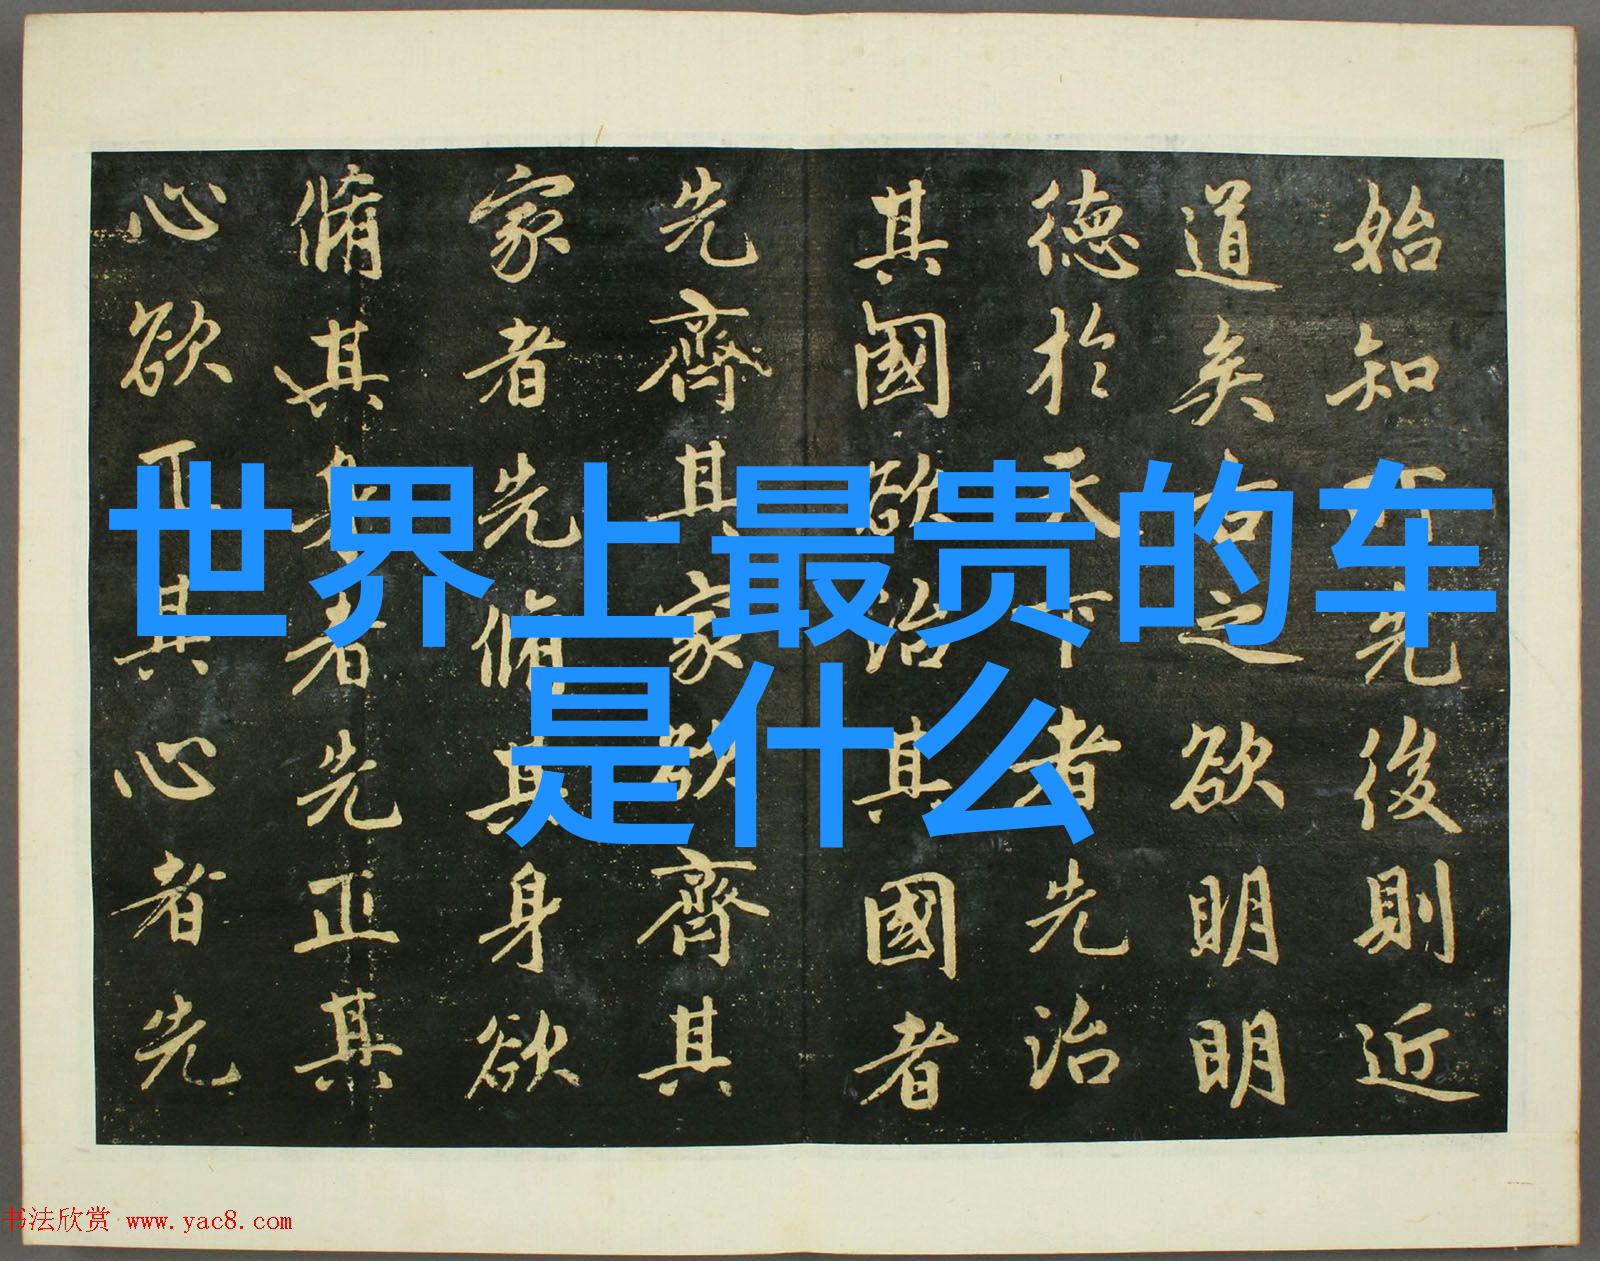 世界上最贵的车
是什么
始知所先後則近
道矣古之欲明明
德於天下者先治
其國欲治其國者
先齊其家欲齊其
家者先脩其身欲
脩其身者先正其
心欲正其心者先
书法欣赏 www.yac8.com